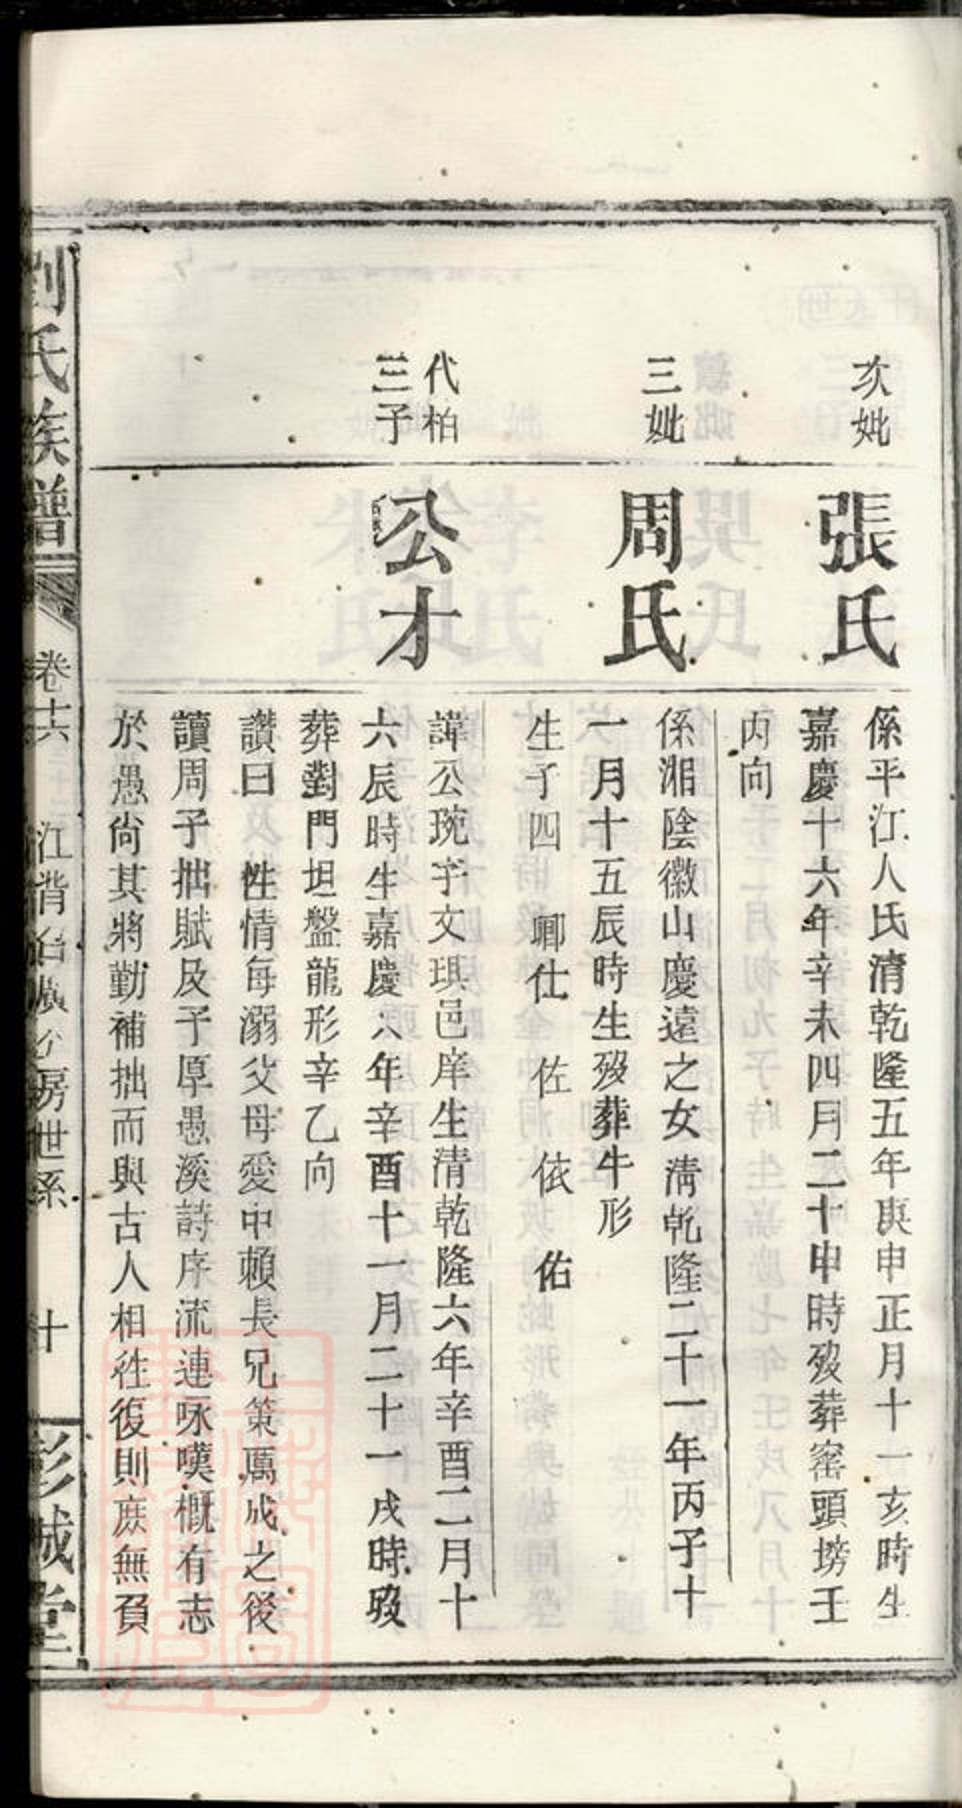 次妣
張氏
係平江人氏清乾隆五年庚申正月十一亥時生
嘉慶十六年辛未四月二十申時歿葬窰頭塝壬
丙向
三妣
周氏
係湘陰徽山慶遠之女清乾隆二十一年丙子十
一月十五辰時生歿葬牛形
生子四 卿仕 佐 依 佑
代柏
三子
公才
諱公琬字文琪邑庠生清乾隆六年辛酉二月十
六辰時生嘉慶六年辛酉十一月二十一戌時歿
葬對門坦盤龍形辛乙向
讚曰 性情每溺父母愛中賴長兄策厲成之後
讀周子拙賦及子厚愚溪詩序流連咏嘆慨有志
於愚尙其將勤補拙而與古人相徃復則庶無負
劉氏族譜
卷十六
江背 公房世系
十
彭城堂